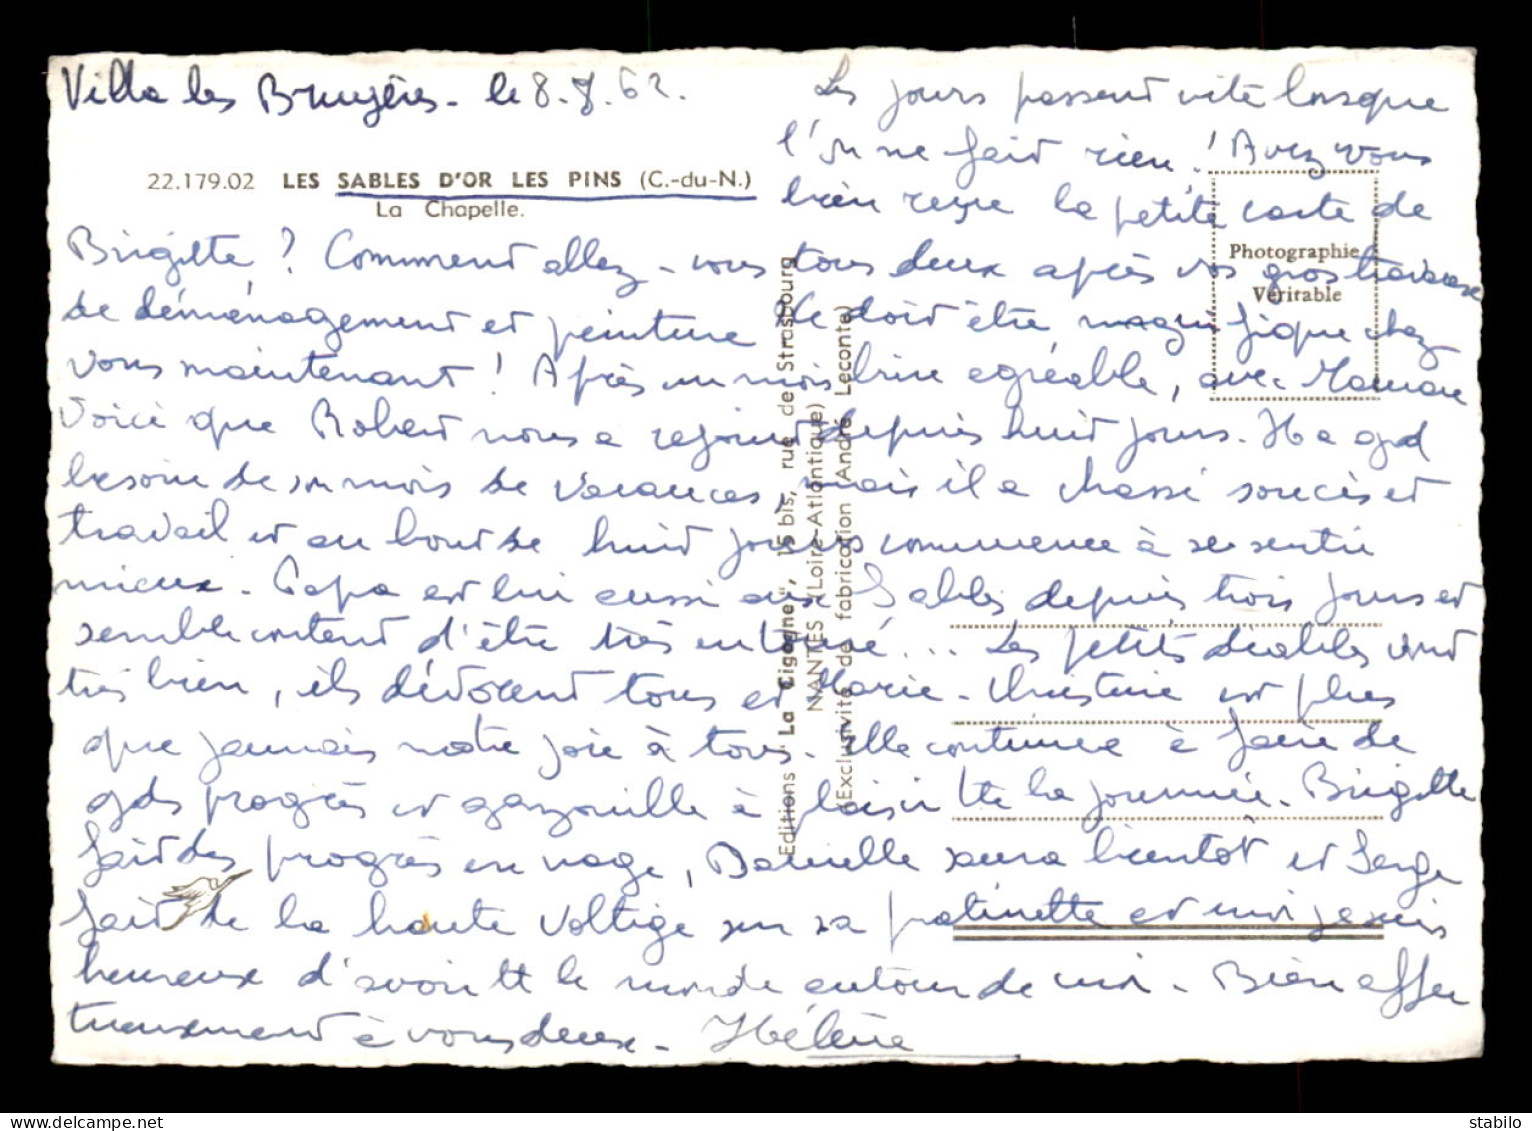 Villa les Bruyères - le 8.8.62.
22.179.02 LES SABLES D'OR LES PINS (C.-du-N.)
La Chapelle.
Les jours passent vite lorsque
l'on ne fait rien ! Avez vous
bien reçue la petite carte de
Brigitte ? Comment allez-vous tous deux après vos gros travaux
de déménagement et peinture ce doit être magnifique chez
vous maintenant ! Après un mois bien agréable, avec Maman
Voici que Robert nous a rejoint depuis huit jours. Il a gd
besoin de son mois de vacances, mais il a chassé soucis et
travail et au bout de huit jours commence à se sentir
mieux. Papa est lui aussi aux Sables depuis trois jours et
semble content d'être très entouré... Les petits diables vont
très bien, ils dévorent tous et Marie-Christine est plus
que jamais notre joie à tous. Elle continue à faire de
gds progrès et gazouille à plaisir tte la journée. Brigitte
fait des progrès en nage, Danielle saura bientôt et Serge
fait de la haute voltige sur sa patinette et moi je suis
heureuse d'avoir tt le monde autour de moi. Bien affec
tueusement à vous deux. Hélène
Photographie
Véritable
Editions "La Cigogne", 15 bis, rue de Strasbourg
NANTES (Loire-Atlantique)
(Exclusivité de fabrication André Leconte)
stabilo